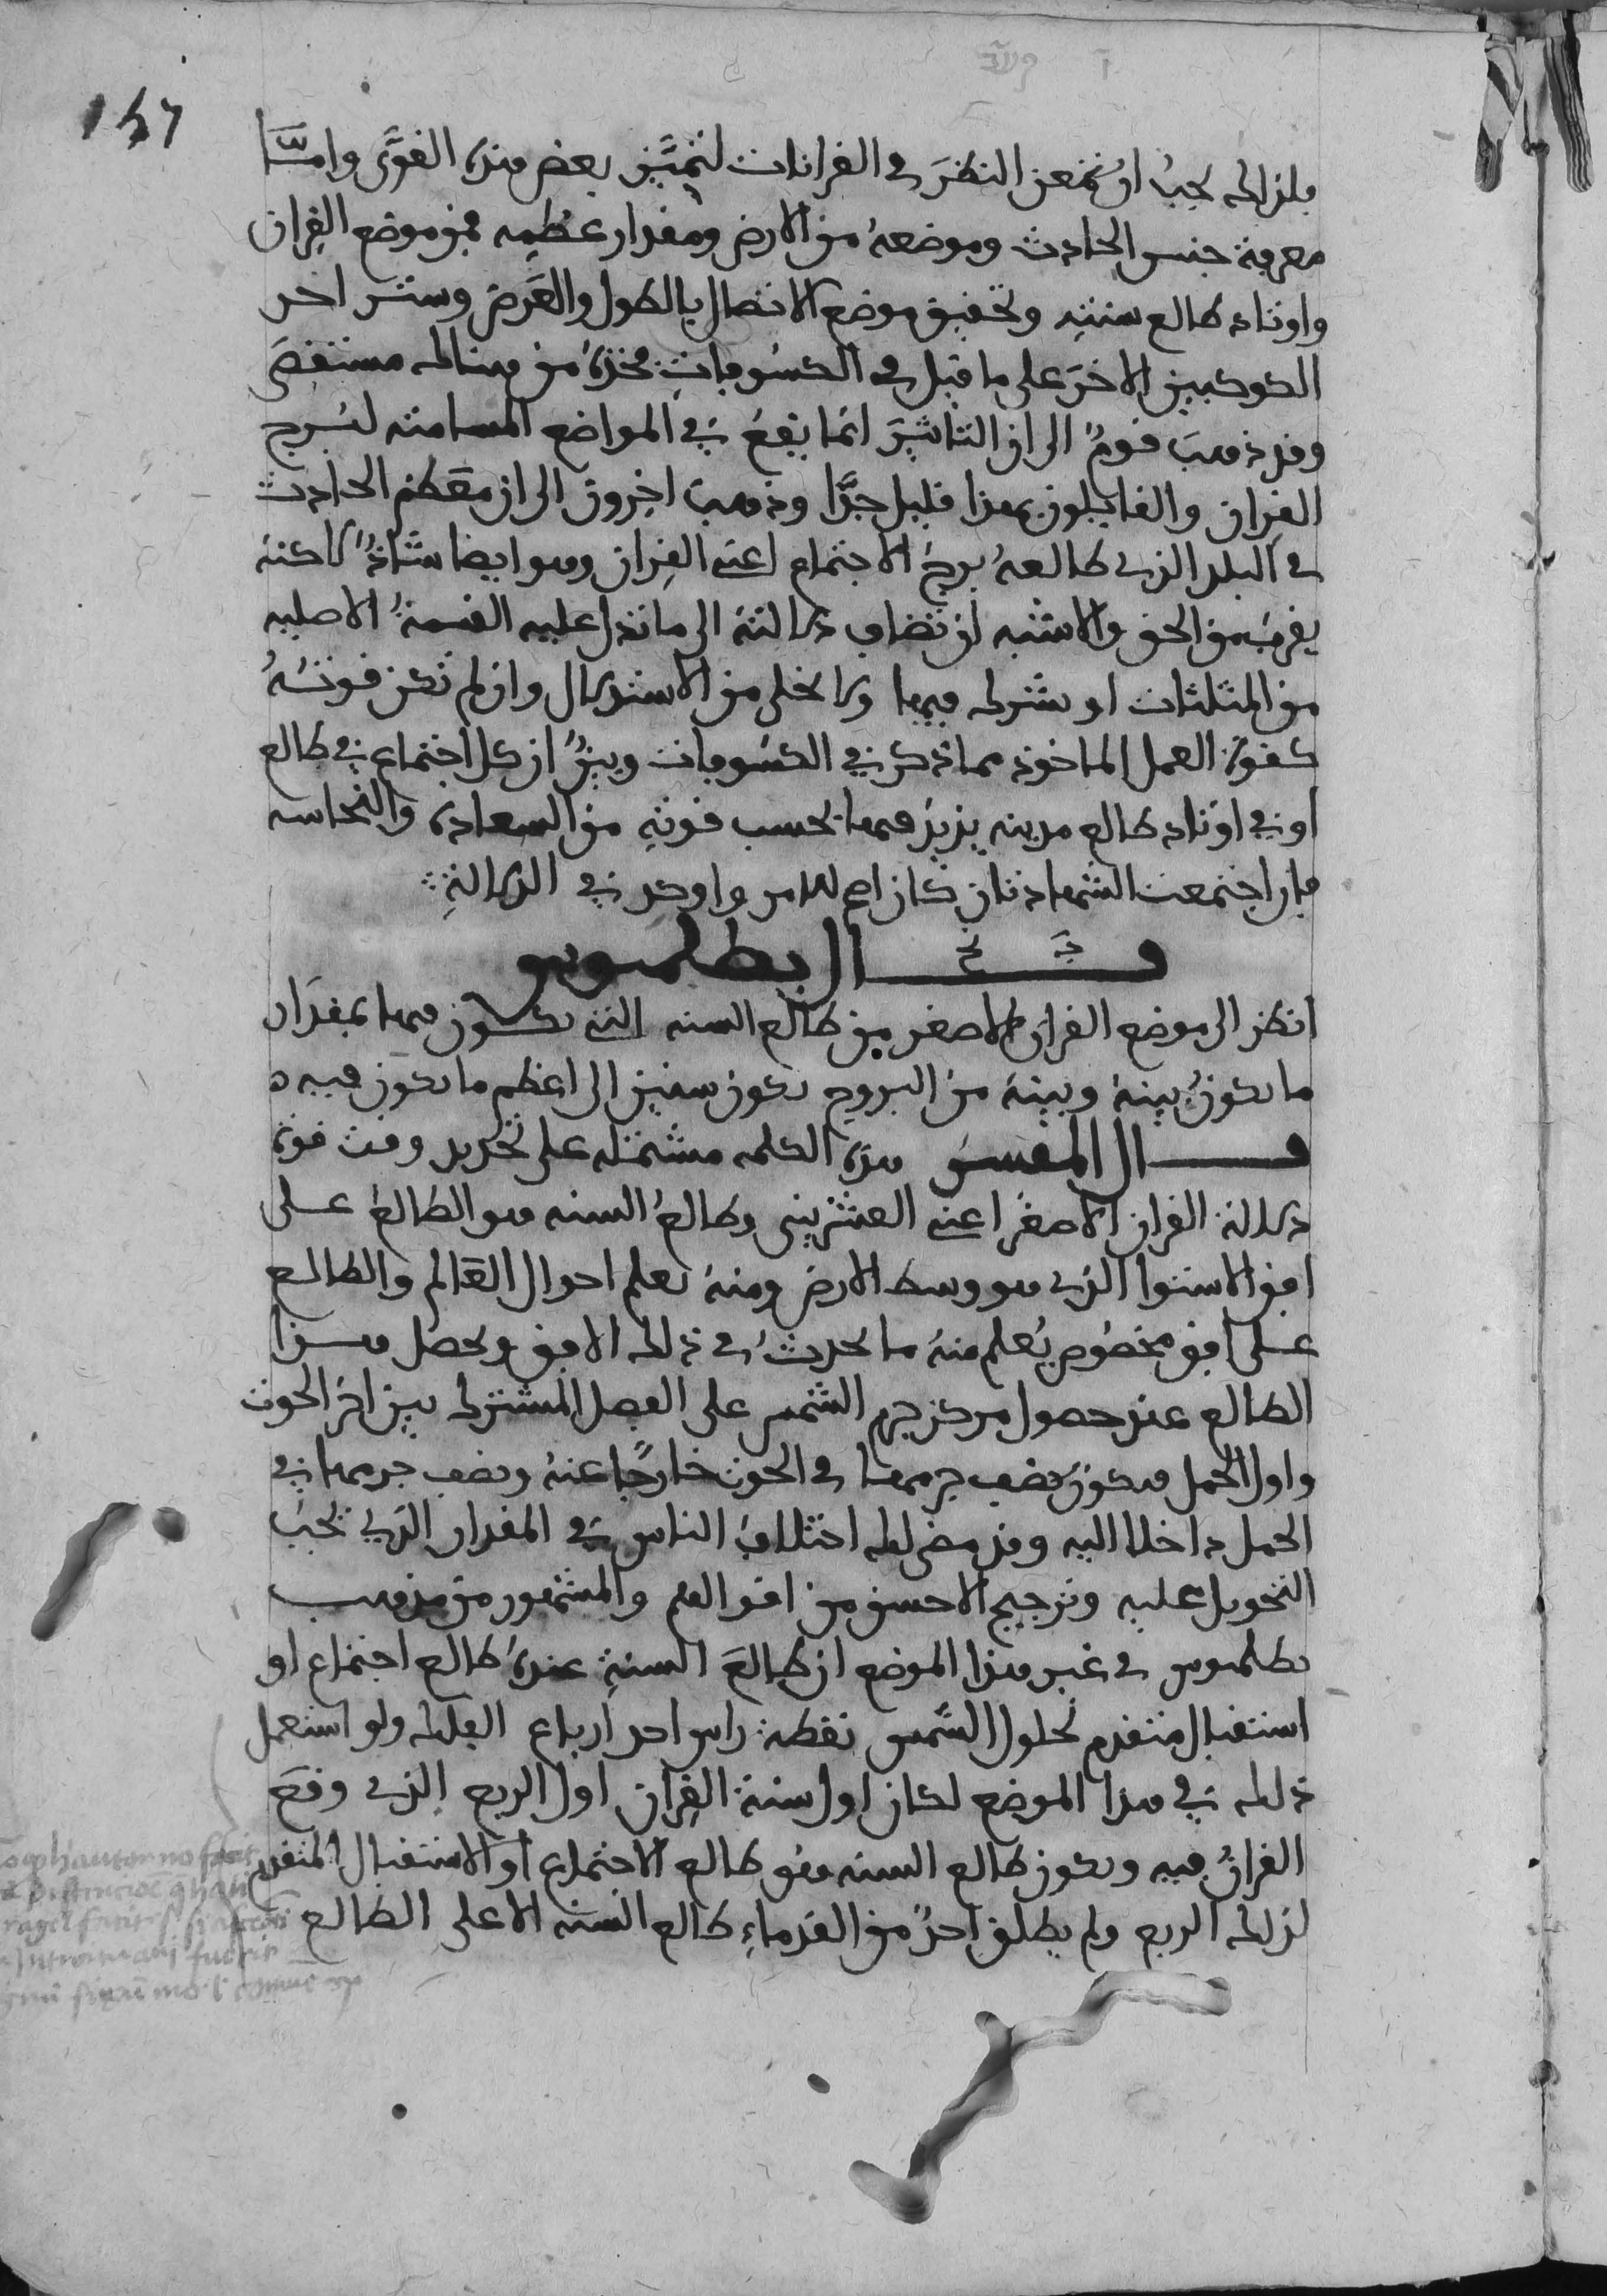 147
فلذلك يجب ان نمعن النظر في القرانات لتتميز بعض هذه القوى واما
معرفة جنس الحادث وموضعه من الارض ومقدار عظمه فمن موضع القران
واوتاد طالع سنته وتحقيق موضع الاتصال بالطول والعرض وستر احد
الكوكبين الاخر على ما قيل في الكسوفات فخذه من هنالك مستقصى
وقد ذهب قوم الى ان التاثير انما يقع في المواضع المسامتة لبرج
القران والقايلون بهذا قليل جدا وذهب اخرون الى ان معظم الحادث
في البلد الذي طالعه برج الاجتماع اعني القران وهو ايضا شاذ لاكنه
يقرب من الحق والاشبه ان تضاف دلالته الى ما تدل عليه القسمة الاصلية
من المثلثات او يشرك فيها ولا يخلى من الاستدلال وان لم تكن قوته
كقوة العمل الماخوذ مما ذكر في الكسوفات وبين ان كل اجتماع في طالع
او في اوتاد طالع مدينه يزيد فيها بحسب قوته من السعادة والنحاسه
فان اجتمعت الشهادتان كان اصح للامر واوكد في الدلالة
قال بطلميوس
انظر الى موضع القران الاصغر من طالع السنه التي يكون فيها بمقدار
ما يكون بينه وبينه من البروج يكون سنين الى اعظم ما يكون فيه
قال المفسر هذه الكلمه مشتملة على تحديد وقت قوة
دلالة القران الاصغر اعني العشريني وطالع السنه هو الطالع على
افق الاستوا الذي هو وسط الارض ومنه تعلم احوال العالم والطالع
على افق مخصوص يعلم منه ما يحدث في ذلك الافق ويحصل هذا
الطالع عند حصول مركز جرم الشمس على الفصل المشترك بين اخر الحوت
واول الحمل فيكون نصف جرمها في الحوت خارجا عنه ونصف جرمها في
الحمل داخلا اليه وقد مضى لك اختلاف الناس في المقدار الذي يجب
التحويل عليه وترجيح الاحسن من اقوالهم والمشهور من مذهب
بطلميوس في غير هذا الموضع ان طالع السنة عنده طالع اجتماع او
استقبال متقدم لحلول الشمس نقطة راس احد ارباع الفلك ولو استعمل
ذلك في هذا الموضع لكان اول سنة القران اول الربع الذي وقع
القران فيه ويكون طالع السنه هو طالع الاجتماع او الاستقبال المتقدم
لذلك الربع ولم يطلق احد من القدماء طالع السنه الا على الطالع